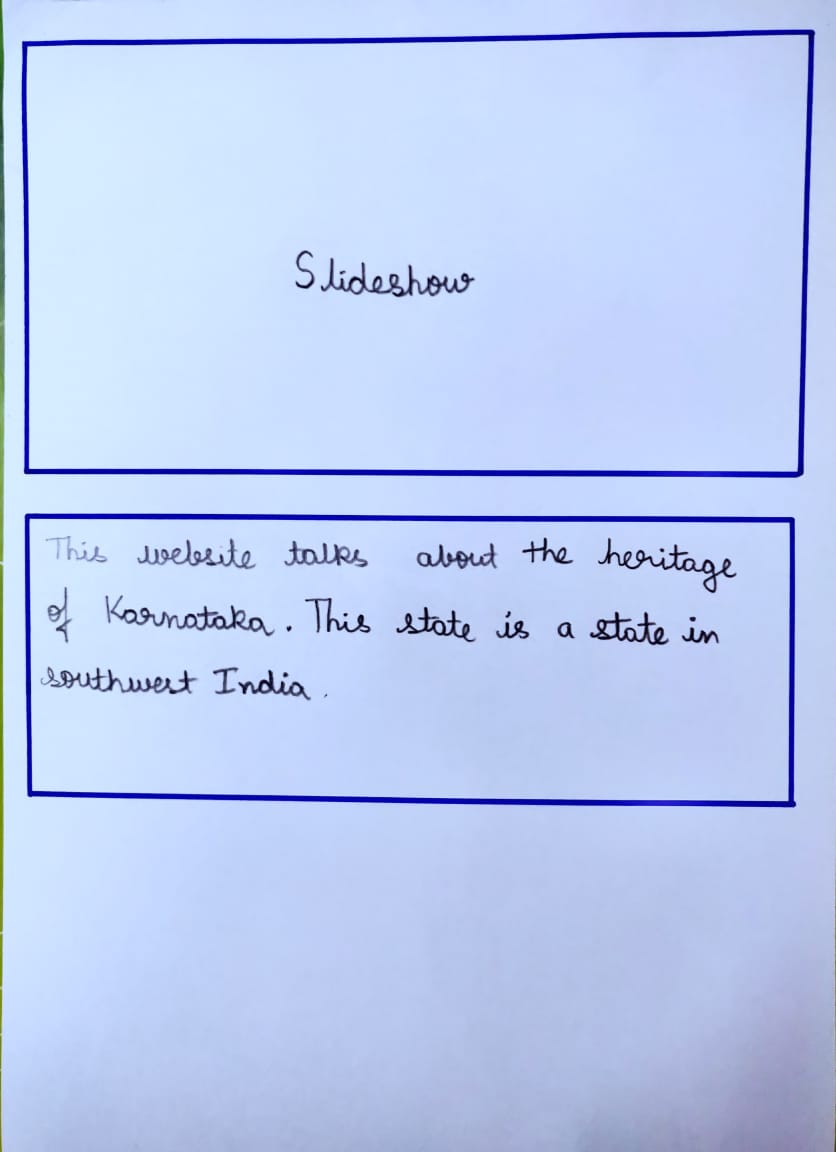 Slideshow
This website talks about the heritage
of Karnataka. This state is a state in
southwest India.